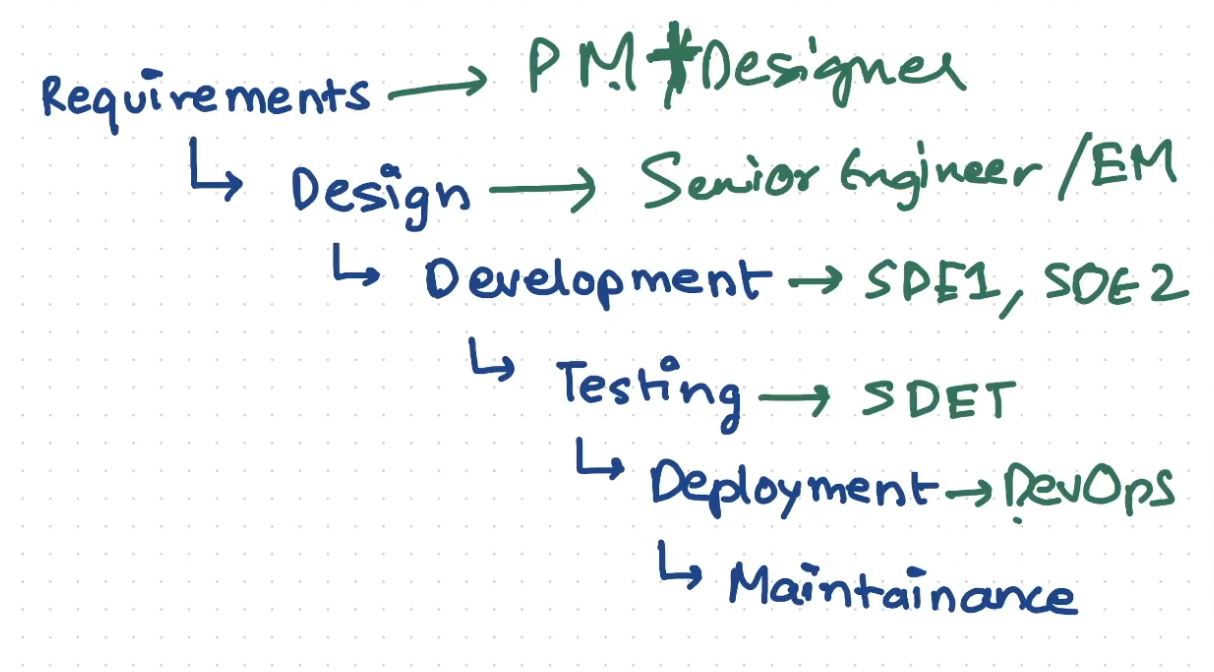 Requirements → PM + Designer
↳ Design → Senior Engineer / EM
↳ Development → SDE1, SDE2
↳ Testing → SDET
↳ Deployment → DevOps
↳ Maintainance